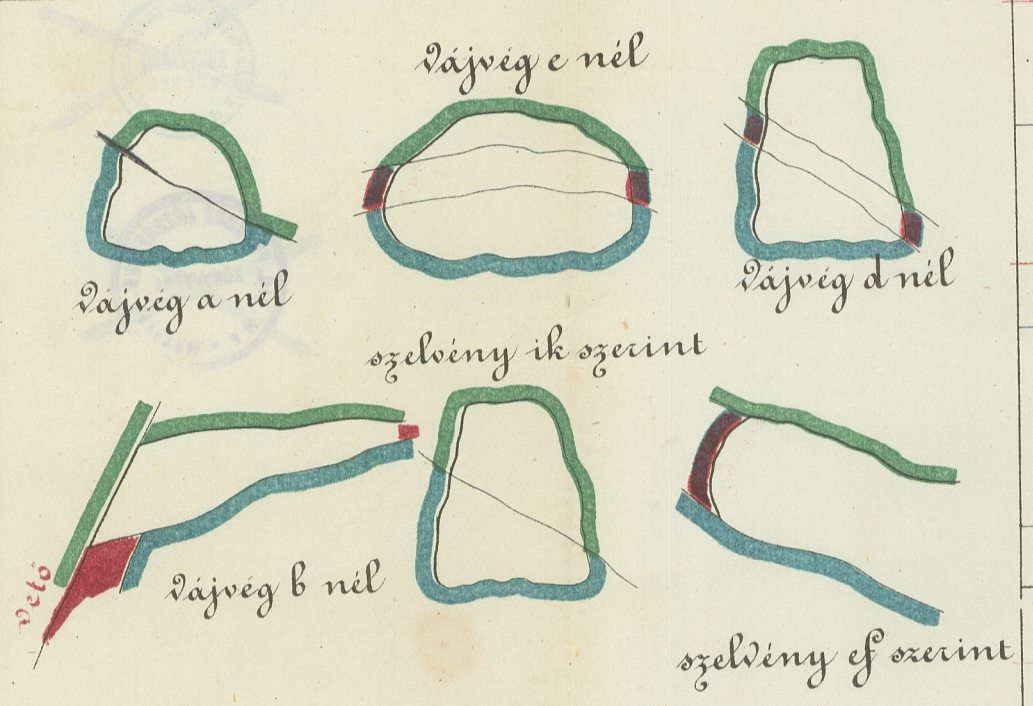 vájvég e nél
vájvég a nél
vájvég d nél
szelvény ik szerint
vető
vájvég b nél
szelvény ef szerint